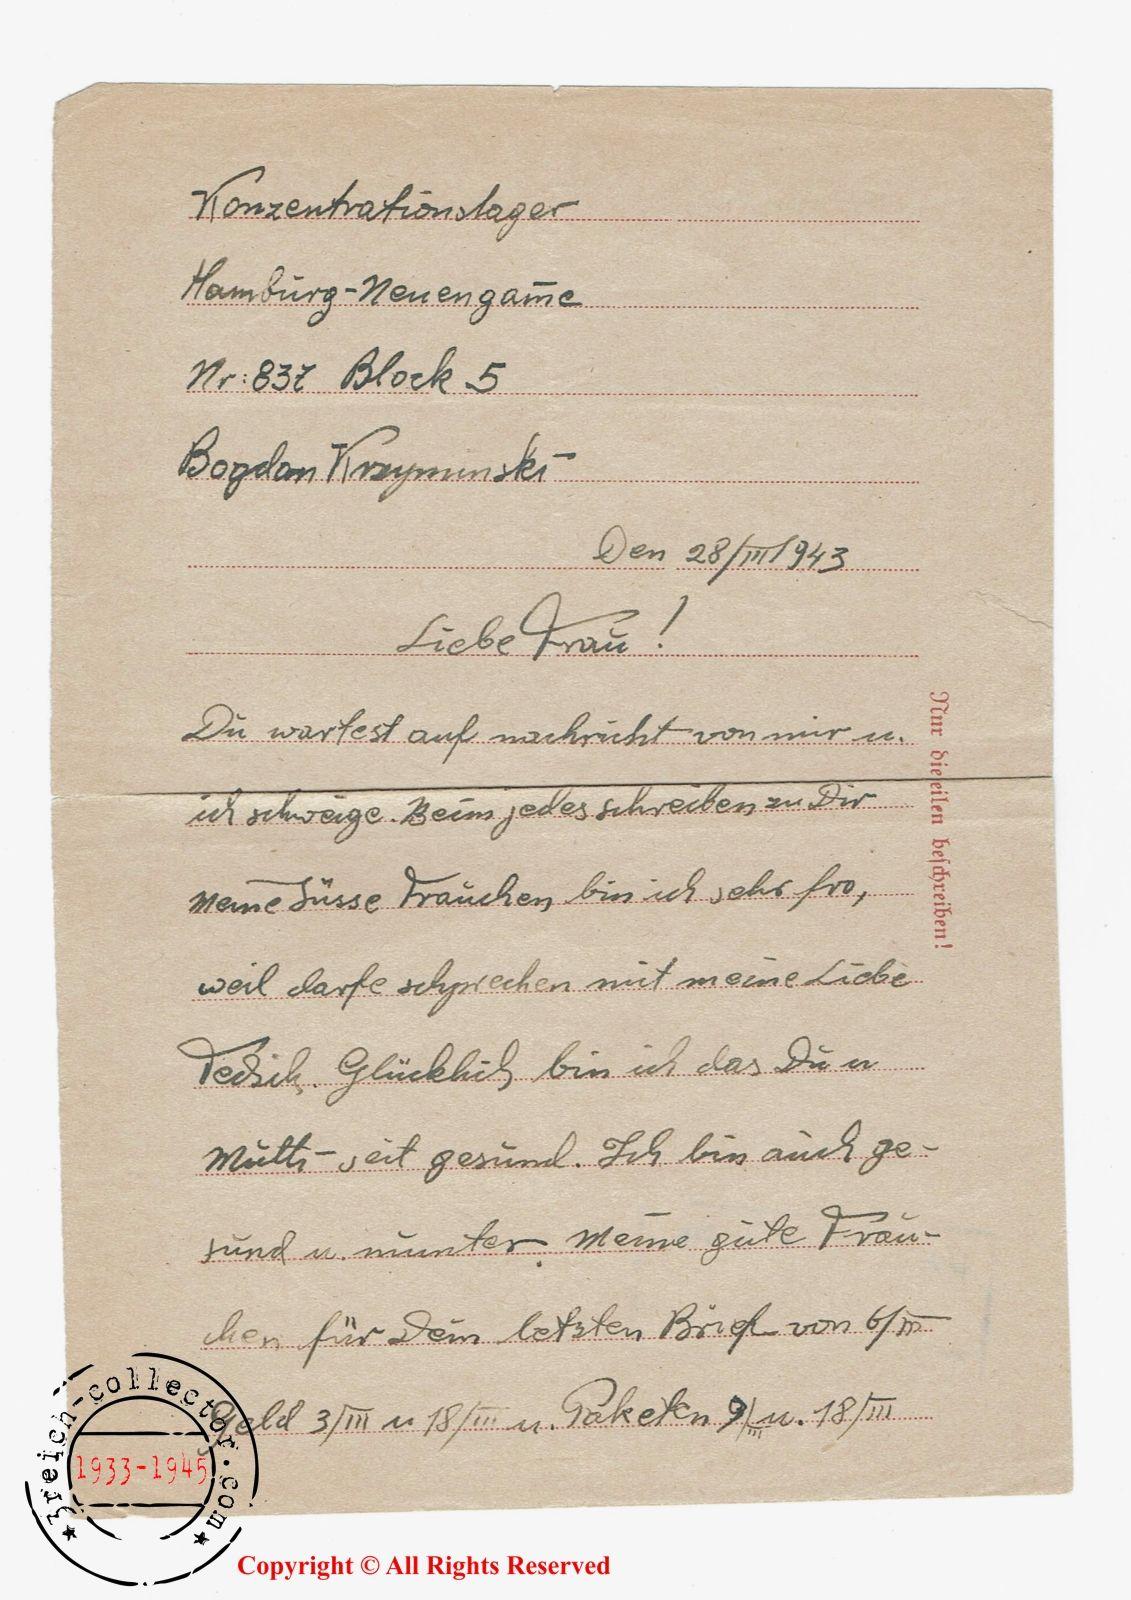 Konzentrationslager
Hamburg-Neuengam̅e
Nr: 837 Block 5
Bogdan Krzyminski
Den 28/III 1943
Liebe Frau!
Du wartest auf nachricht von mir u.
ich schweige. Beim jedes schreiben zu Dir
meine Süsse Frauchen bin ich sehr fro,
weil darfe schprechen mit meine Liebe
Glücklich bin ich das Du u
Mutti seit gesund. Ich bin auch ge-
sund u. munter. Meine gute Frau-
chen für Dein letzten Brief von 6/III
Geld 3/III u 18/III u. Paketen 9/III u. 18/III
Nur dieeilen beschreiben!
3reich-collector.com
1933-1945
Copyright © All Rights Reserved